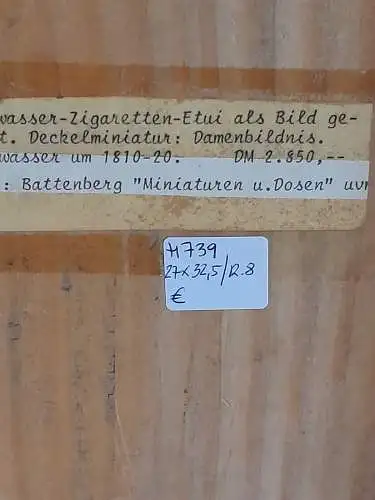 wasser-Zigaretten-Etui als Bild ge-
t. Deckelminiatur: Damenbildnis.
wasser um 1810-20. DM 2.850,--
: Battenberg "Miniaturen u.Dosen" uvm
4739
27x32,5/12.8
€